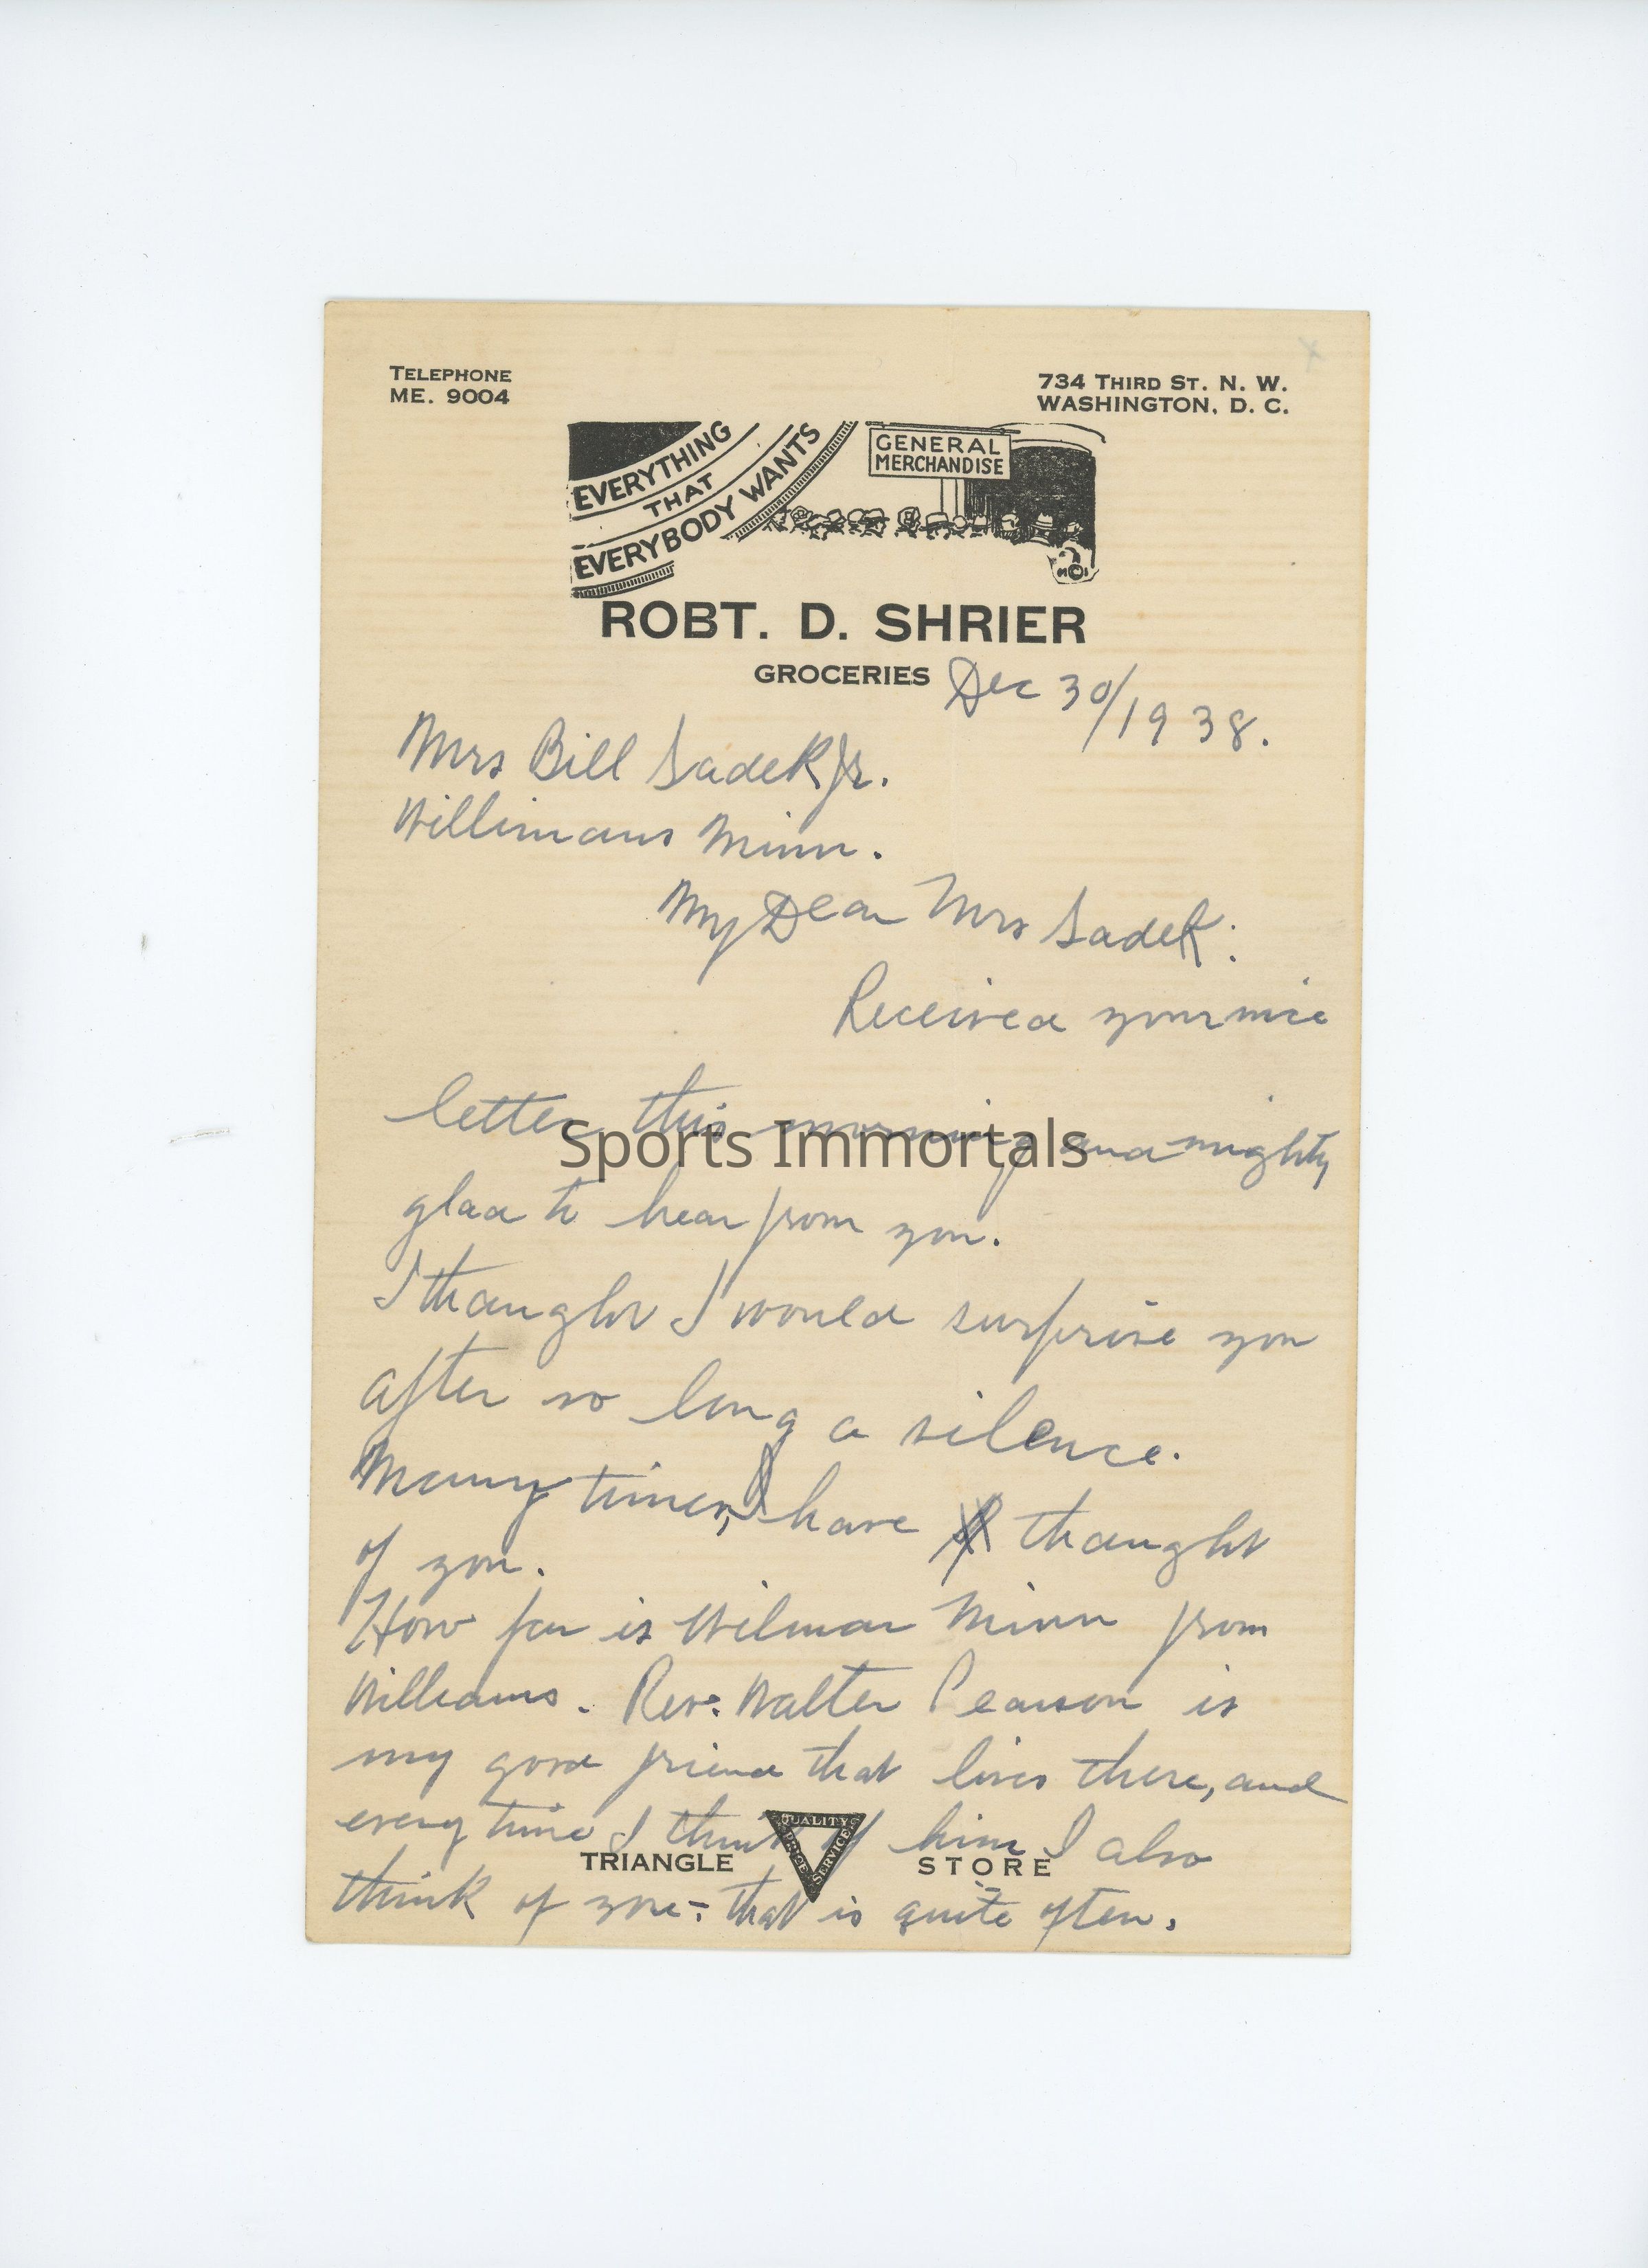 TELEPHONE
ME. 9004
734 THIRD ST. N. W.
WASHINGTON, D. C.
EVERYTHING
THAT
EVERYBODY WANTS
GENERAL
MERCHANDISE
ROBT. D. SHRIER
GROCERIES
Dec 30/1938.
Mrs Bill Sadek Jr.
Minn.
My Dear Mrs Sadek:
Received your nice
letter this morning and mighty
glad to hear from you.
I thought I would surprise you
after so long a silence.
Many times, I have thought
of you.
How far is Wilmar Minn from
Williams. Rev. Walter Pearson is
my good friend that lives there, and
every time I think of him I also
think of you - that is quite often.
TRIANGLE STORE
QUALITY
PRICE
SERVICE
Sports Immortals